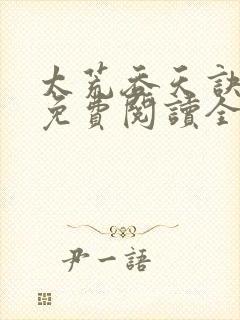 太荒吞天訣
免費閱讀全
尹一語